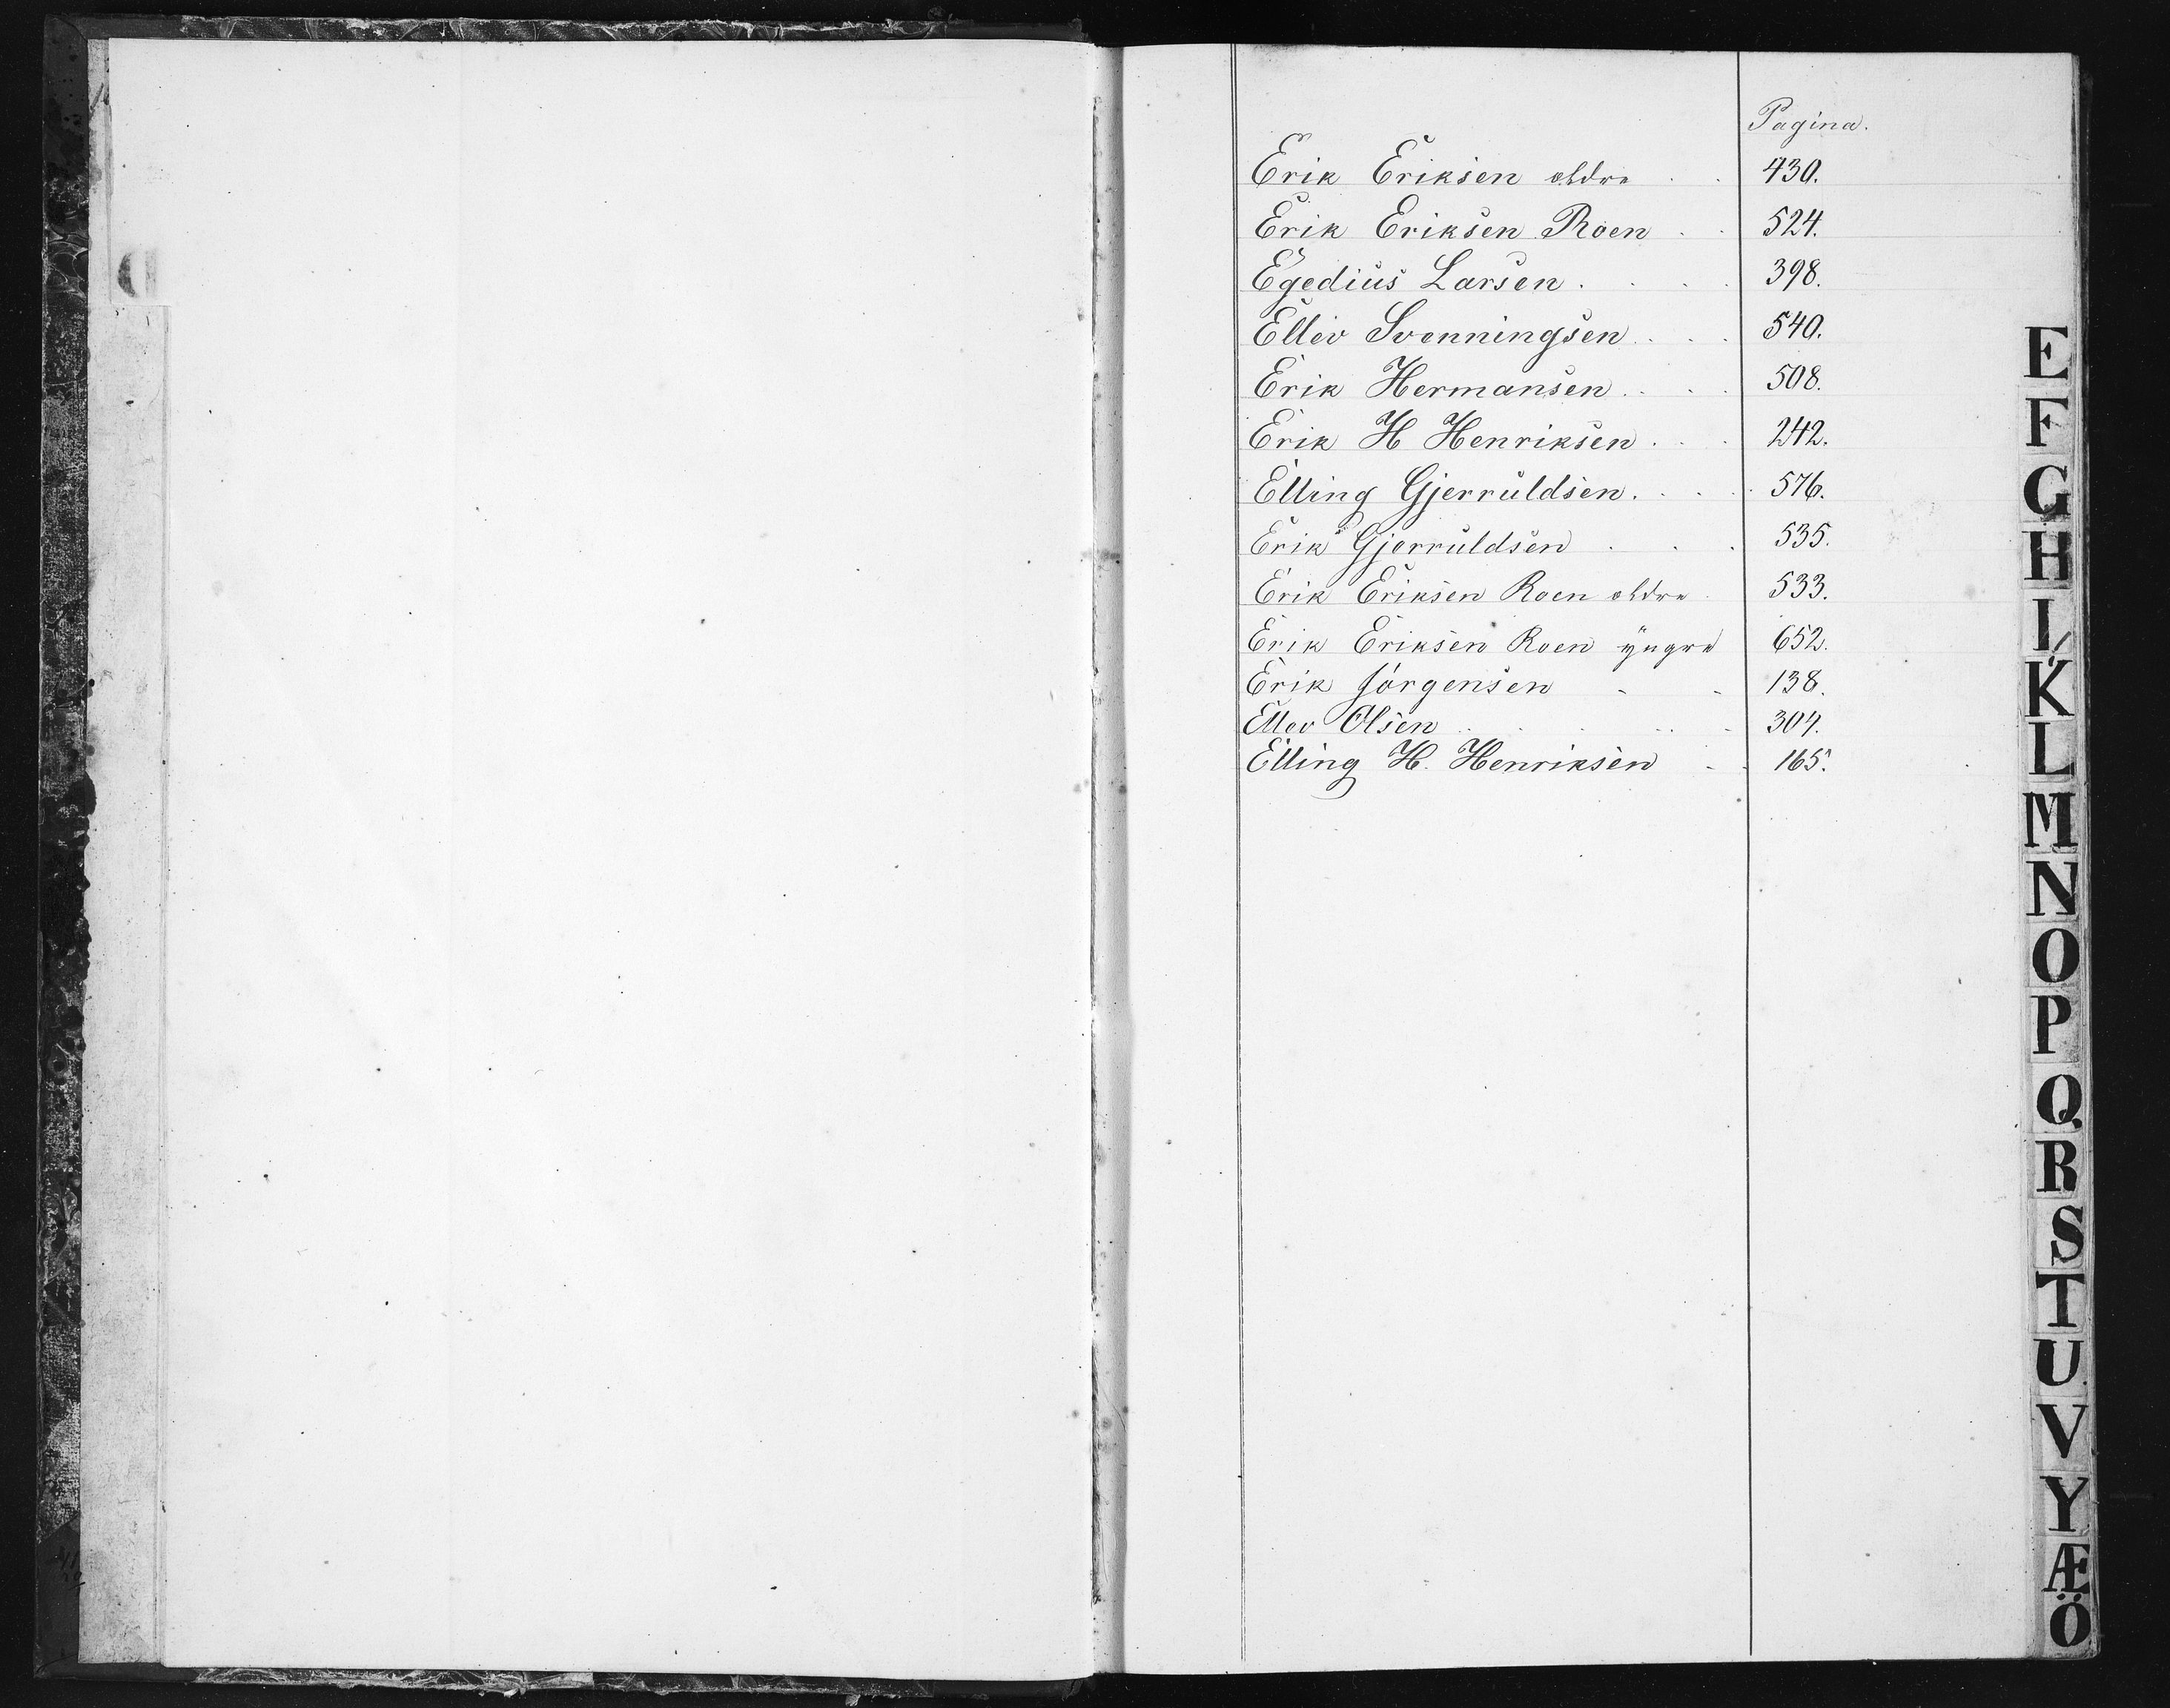 Pagina.
Erik Eriksen ældre . . 430.
Erik Eriksen Roen . . 524.
Egedius Larsen . . . . 398.
Ellev Svenningsen . . . 540.
Erik Hermansen . . . 508.
Erik H Henriksen . . . 242.
Elling Gjerruldsen . . . . 576.
Erik Gjerruldsen . . . 535.
Erik Eriksen Roen ældre . 533.
Erik Eriksen Roen yngre 652.
Erik Jörgensen - - 138.
Ellev Olsen . . . . - 304.
Elling H. Henriksen - . 165.
E
F
G
H
I
K
L
M
N
O
P
Q
R
S
T
U
V
Y
Æ
Ö